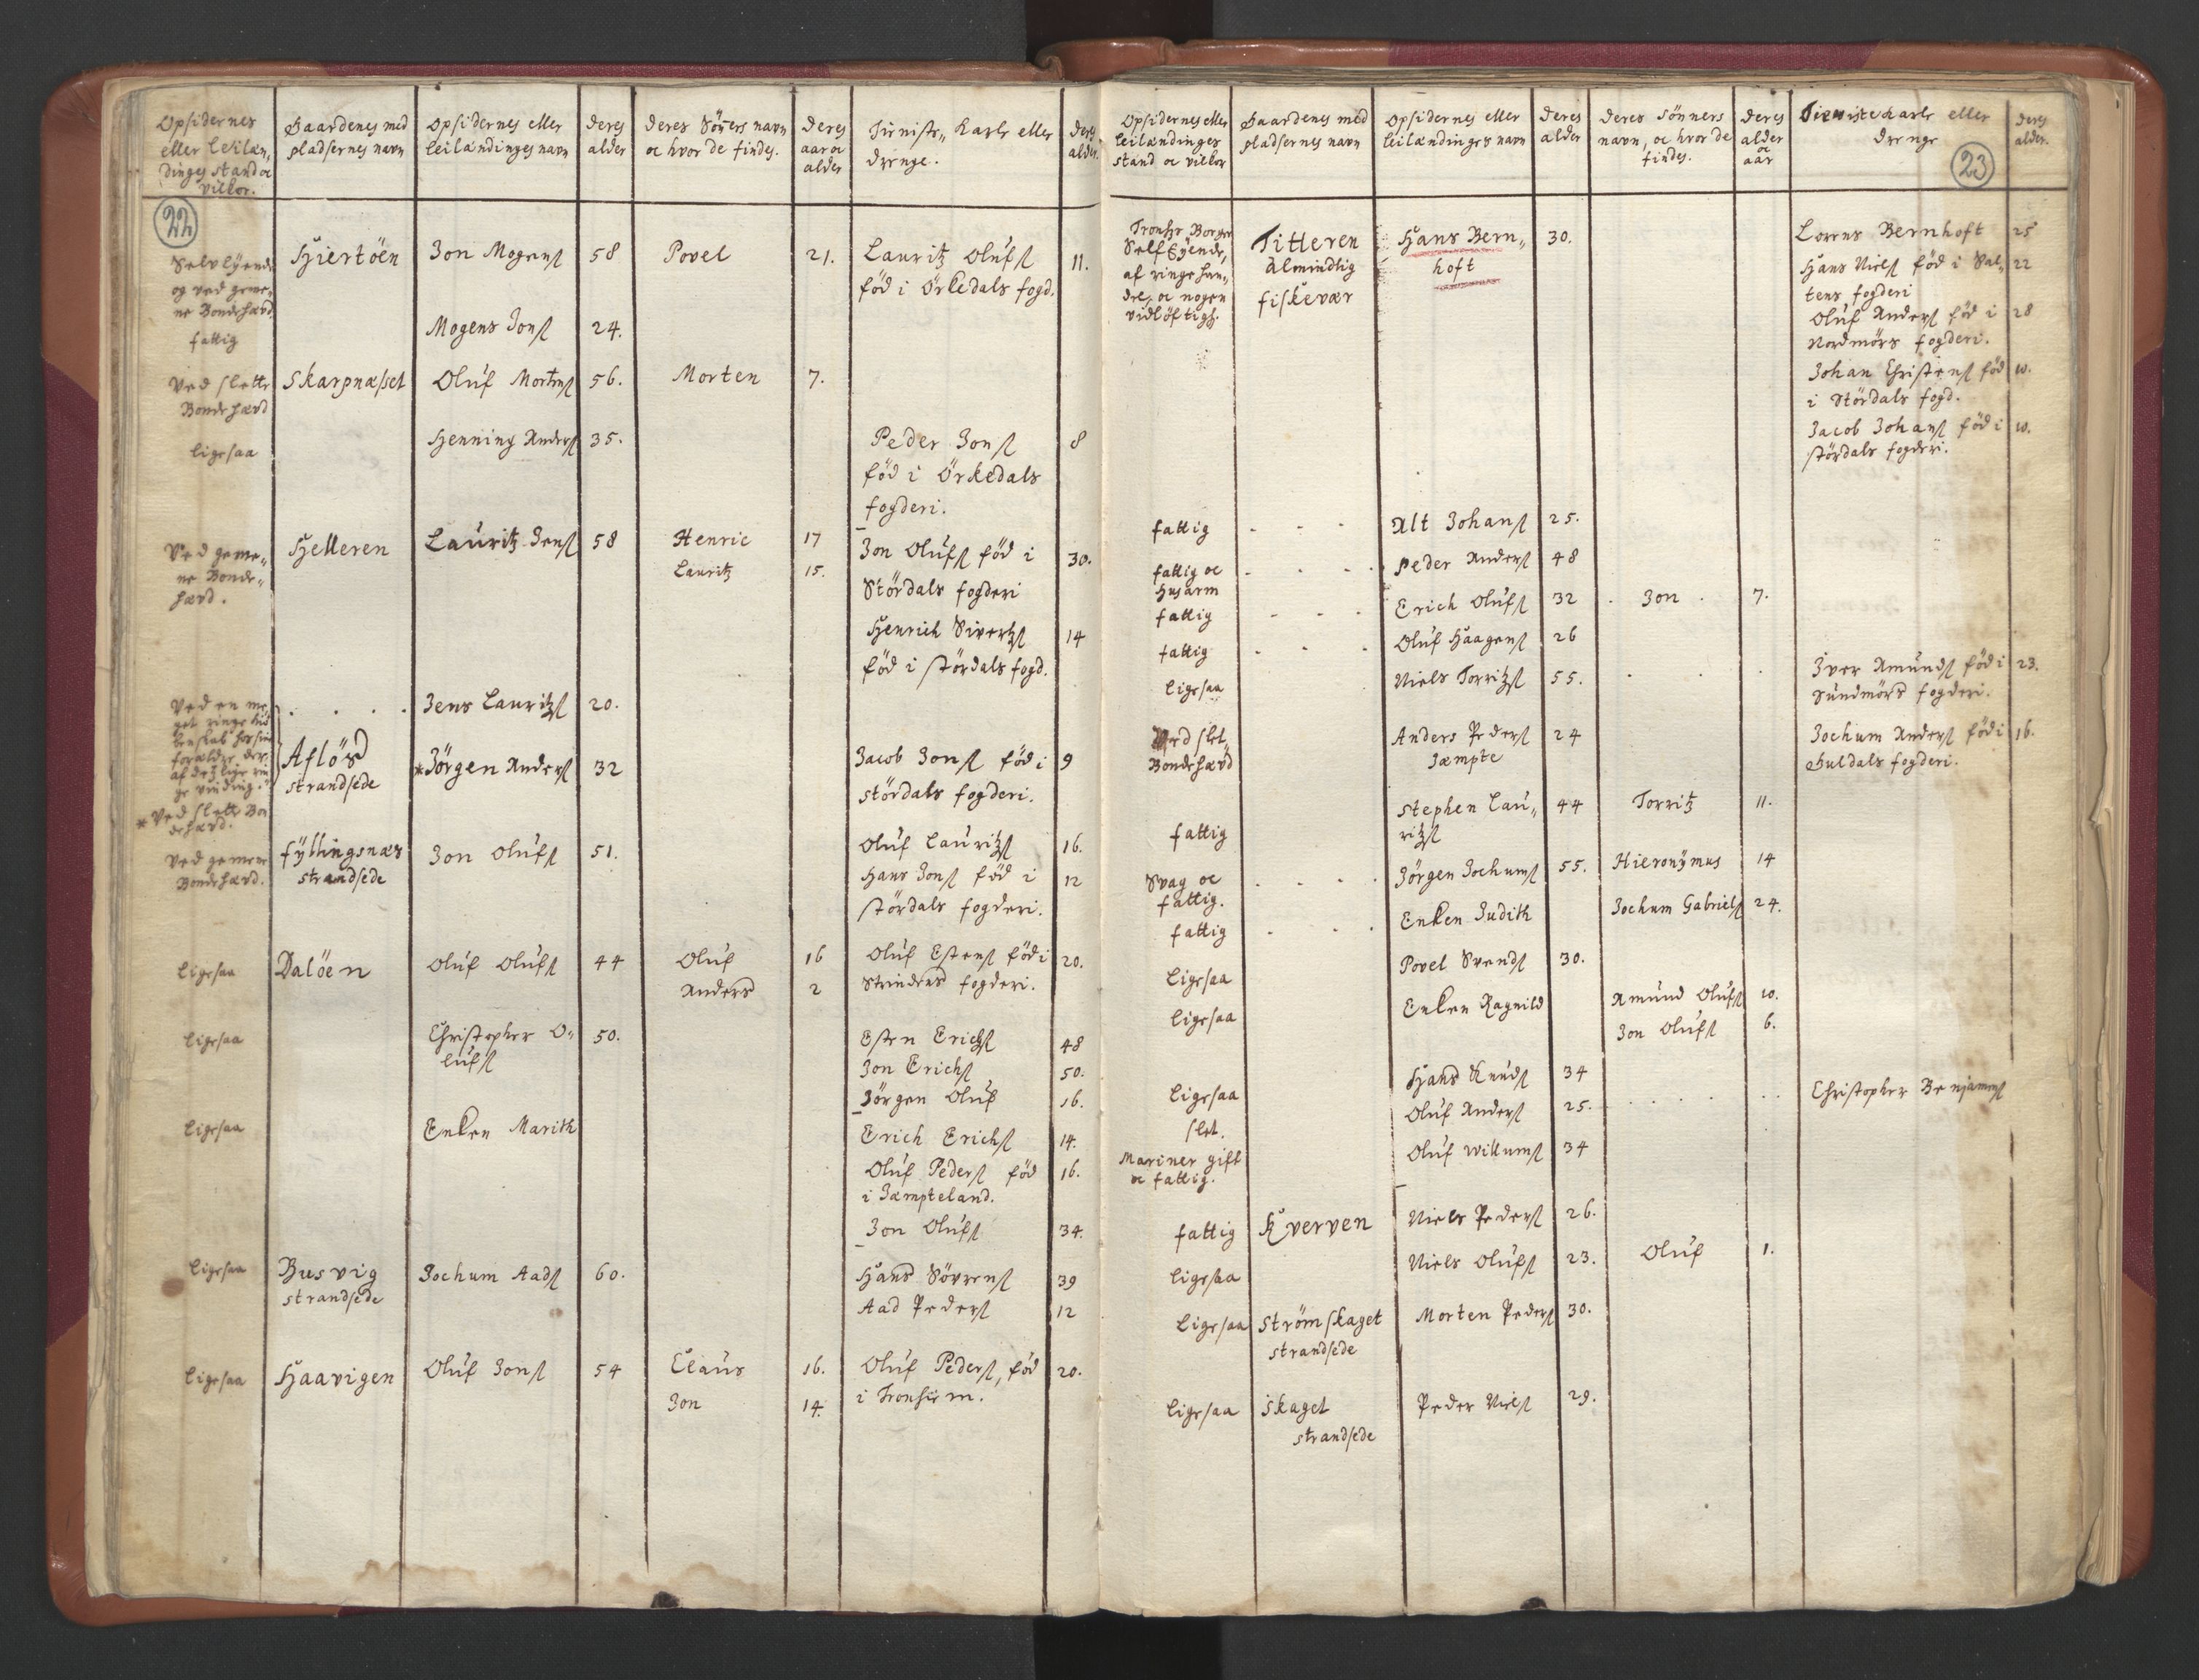 Opsidernes
eller leilæn,
dinges stand oc
vilkor.
Gaardenes med
pladsernes navn
Opsidernes eller
leilændinges navn
deres
alder
deres Söners navn
oc hvor de findes.
deres
aar oc
alder
Tienist,, Karle eller
drenge.
deres
alder.
22
Selv eyende
og ved geme,,
ne Bondehærd
fattig
Hiertöen
Jon Mogens
58
Povel
21.
Lauritz Olufs
11.
föd i Örkedals fogd.
Mogens Jons
24.
Ved slette
Bonde hærd
Skarpnæsset
Oluf Mortens
56.
Morten
7.
ligesaa
Henning Anders
35.
Peder Jons
8
föd i Örkedals
fogderi.
Ved geme,,
ne Bonde,,
hærd.
Helleren
Lauritz Jens
58
Henric
17
Lauritz
15.
Jon Olufs föd i
30.
Stördals fogderi
Henrich Siverts
14
föd i stördals fogd.
Ved en me
get ringe
forældre der
af deslige rin
ge vinding.
. . . .
Jens Lauritzs
20.
Aflösd
strandsede
*Jörgen Anders
32
Jacob Jons föd i
9
stördals fogderi.
* Ved slette Bon
dehærd.
Ved gemene
Bondehærd.
fyllingsnæs
strandsede
Jon Olufs
51.
Oluf Lauritzs
16.
Hans Jons föd i
12
stördals fogderi.
ligesaa
Dalöen
Oluf Olufs
44
Oluf
16
Anders
2
Oluf Estens föd i
20.
Strindens fogderi.
ligesaa
Christopher O,,
lufs
50.
Esten Erichs
48
Jon Erichs
50.
Jörgen Oluf
16.
ligesaa
Enken Marith
Erich Erichs
14.
Oluf Peders föd
16.
i Jæmpteland.
Jon Olufs
34.
ligesaa
Busvig
strandsede
Jochum Aads
60.
Hans Sörens
39
Aad Peders
12
ligesaa
Haavigen
Oluf Jons
54
Claus
16.
Jon
14.
Oluf Peders, föd
20.
i Tronhiem.
Opsidernes eller
leilændinges
stand oc vilkor
Gaardenes med
pladsernes navn
Opsidernes eller
leilændinges navn
deres
alder
deres Sönners
navn, oc hvor de
findes.
deres
alder
oc
aar
Tienistekarle eller
drenge
deres
alder.
23
Tronhs Borger
Self Eyende,
af ringe han,,
del, oc nogen
vidlöftigh.
Titteren
almindlig
fiskevær
Hans Bern,,
hoft
30.
Lorens Bernhoft
25
Hans Niels föd i Sal,,
22
tens fogderi
Oluf Anders föd i
28
Nordmörs fogderi.
Johan Christens föd
10.
i Stördals fogd.
Jacob Johans föd i
10.
stördals fogderi.
fattig
. . .
Alt Johans
25.
fattig oc
Husarm
. . . .
Peder Anders
48
fattig
. . .
Erich Olufs
32
Jon
7.
fattig
. . .
Oluf Haagens
26
ligesaa
Niels Torritzs
55.
Iver Amunds föd i
23.
Sundmörs fogderi.
Ved slet
Bondehærd
Anders Peders
Jæmpte
24
Jochum Anders föd i
16.
Guldals fogderi.
fattig
Stephen Lau,,
ritzs
44
Torritz
11.
Svag oc
fattig.
. . . .
Jörgen Jochums
55.
Hieronymus
14
fattig
. . . .
Enken Judith
Jochum Gabriels
24.
ligesaa
Povel Svends
30.
ligesaa
Enken Ragnild
Amund Olufs
10.
Jon Olufs
6.
ligesaa
Hans Knuds
34
slet.
Oluf Anders
25.
Christopher Benjamens
Mariner gift
oc fattig.
Oluf Willums
34
fattig
Kverven
Niels Peders
26.
ligesaa
Niels Olufs
23.
Oluf
1.
ligesaa
Strömskaget
strandsede
Morten Peders
30.
ligesaa
Skaget
strandsede
Peder Niels
29.